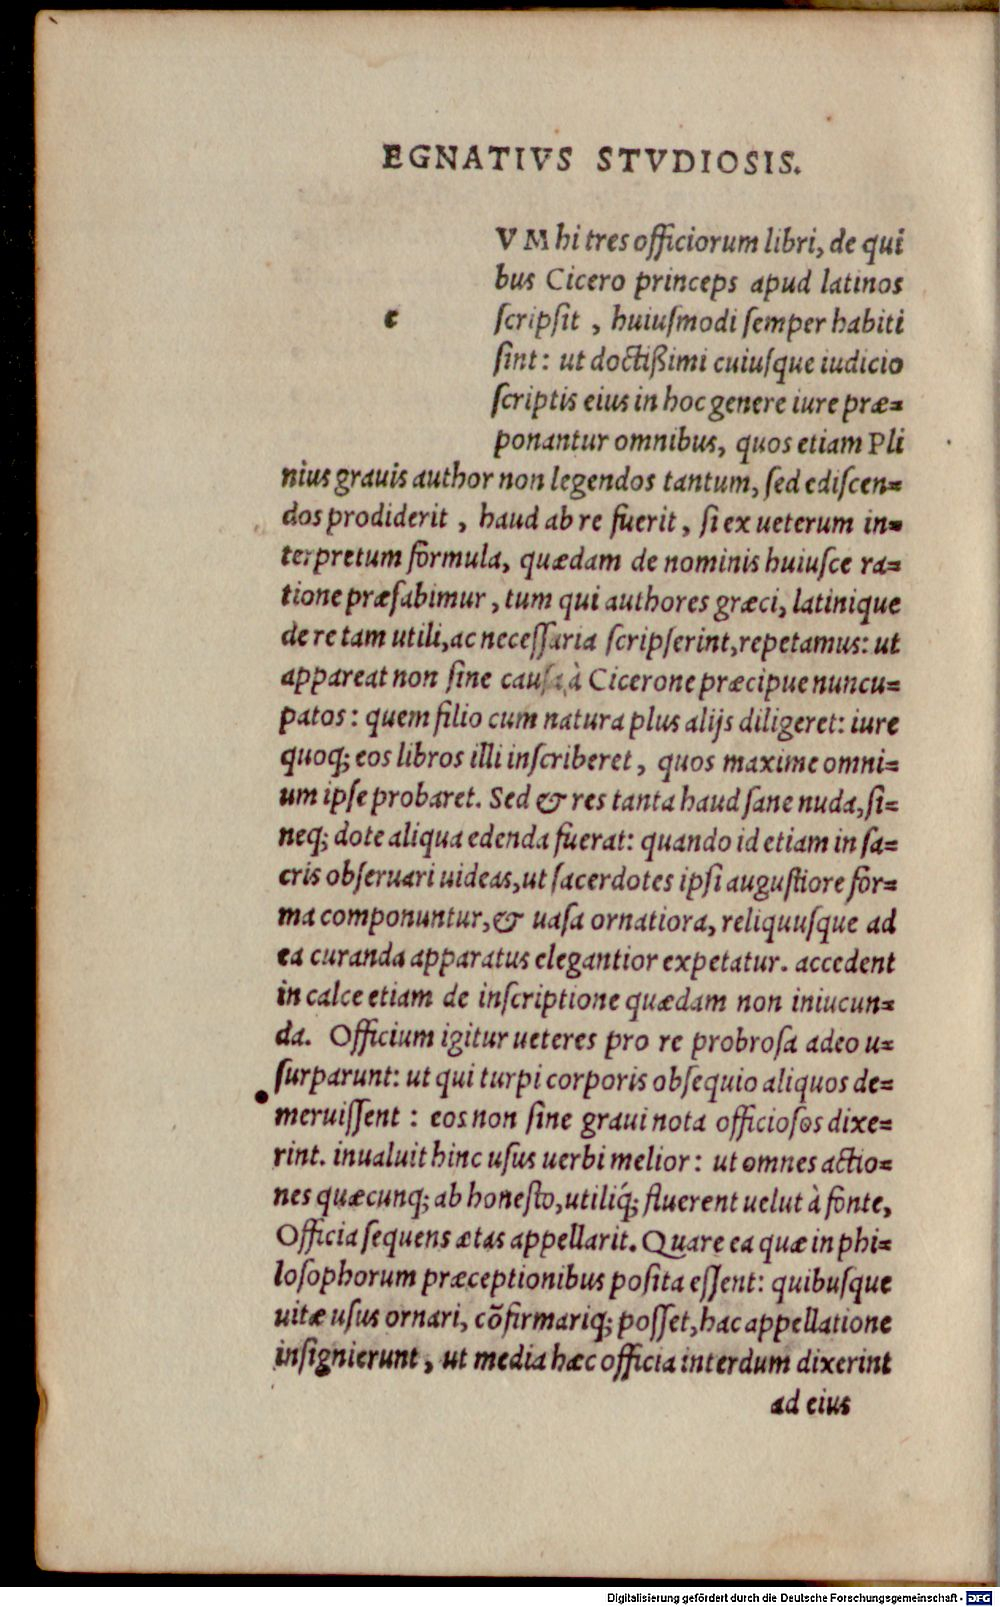 EGNATIVS STVDIOSIS.
c
V M hi tres officiorum libri, de qui
bus Cicero princeps apud latinos
scripsit , huiusmodi semper habiti
sint: ut doctißimi cuiusque iudicio
scriptis eius in hoc genere iure præ=
ponantur omnibus, quos etiam Pli
nius grauis author non legendos tantum, sed ediscen=
dos prodiderit , haud ab re fuerit , si ex ueterum in=
terpretum formula, quædam de nominis huiusce ra=
tione præfabimur , tum qui authores græci, latinique
de re tam utili, ac necessaria scripserint, repetamus: ut
appareat non sine causa à Cicerone præcipue nuncu=
patos: quem filio cum natura plus alijs diligeret: iure
quoq; eos libros illi inscriberet , quos maxime omni=
um ipse probaret. Sed & res tanta haud sane nuda, si=
neq; dote aliqua edenda fuerat: quando id etiam in sa=
cris obseruari uideas, ut sacerdotes ipsi augustiore for=
ma componuntur, & uasa ornatiora, reliquusque ad
ea curanda apparatus elegantior expetatur. accedent
in calce etiam de inscriptione quædam non iniucun=
da. Officium igitur ueteres pro re probrosa adeo u=
surparunt: ut qui turpi corporis obsequio aliquos de=
meruissent : eos non sine graui nota officiosos dixe=
rint. inualuit hinc usus uerbi melior: ut omnes actio=
nes quæcunq; ab honesto, utiliq́; fluerent uelut à fonte,
Officia sequens ætas appellarit. Quare ea quæ in phi=
losophorum præceptionibus posita essent: quibusque
uitæ usus ornari, cõfirmariq; posset, hac appellatione
insignierunt , ut media hæc officia interdum dixerint
ad eius
Digitalisierung gefördert durch die Deutsche Forschungsgemeinschaft - DFG